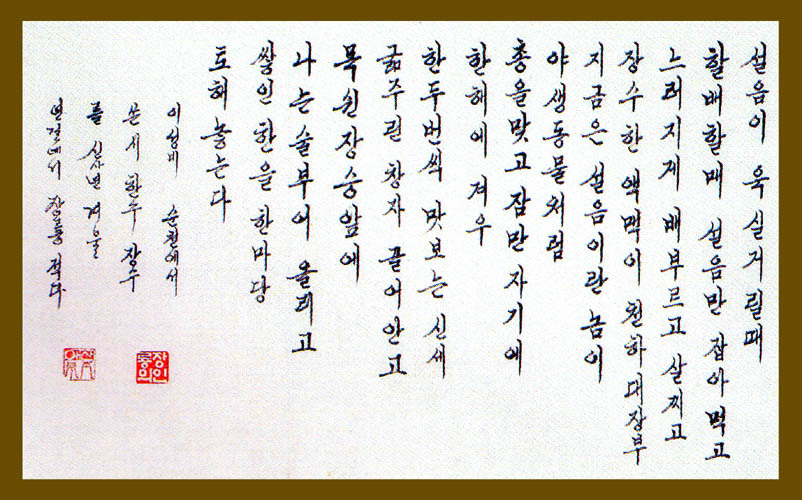 설음이 욱실거릴때
할배할매 설음만 잡아먹고
느러지게 배부르고 살찌고
장수한 액맥이 천하대장부
지금은 설음이란 놈이
야생동물처럼
총을맞고 잠만 자기에
한해에 겨우
한두번씩 맛보는 신세
굶주린 창자 끌어안고
목쉰장승앞에
나는술부어 올리고
쌓인한을 한마당
토해놓는다
이성비 순천에서
쓴시한수 장수
를 신사년 겨울
연길에서 장동 적다
장인